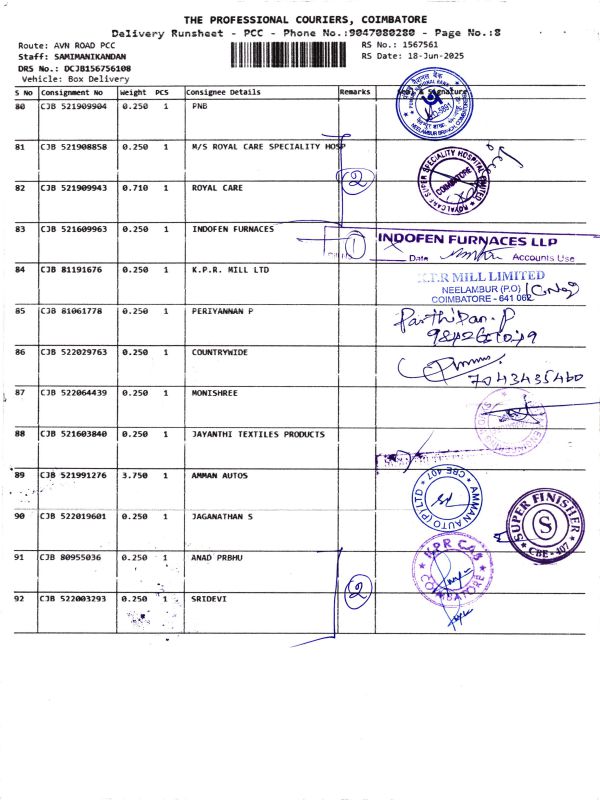 THE PROFESSIONAL COURIERS, COIMBATORE
Delivery Runsheet - PCC - Phone No.:9047080280 - Page No.:8
Route: AVN ROAD PCC
RS No.: 1567561
Staff: SAMIMANIKANDAN
RS Date: 18-Jun-2025
DRS No.: DCJB156756108
Vehicle: Box Delivery
S No Consignment No Weight PCS Consignee Details Remarks Signature
80 CJB 521909904 0.250 1 PNB
NEELAMBUR BRANCH, COIMBATORE
81 CJB 521908858 0.250 1 M/S ROYAL CARE SPECIALITY HOSP
2
ROYALCARE SUPER SPECIALITY HOSPITAL LIMITED
COIMBATORE
82 CJB 521909943 0.710 1 ROYAL CARE
83 CJB 521609963 0.250 1 INDOFEN FURNACES
1
INDOFEN FURNACES LLP
Date Accounts Use
84 CJB 81191676 0.250 1 K.P.R. MILL LTD
K.P.R MILL LIMITED
NEELAMBUR (P.O)
COIMBATORE - 641 062
85 CJB 81061778 0.250 1 PERIYANNAN P
Parthiban.P
86 CJB 522029763 0.250 1 COUNTRYWIDE
7043435460
87 CJB 522064439 0.250 1 MONISHREE
88 CJB 521603840 0.250 1 JAYANTHI TEXTILES PRODUCTS
89 CJB 521991276 3.750 1 AMMAN AUTOS
AMMAN AUTO (P) LTD
CBE 407
90 CJB 522019601 0.250 1 JAGANATHAN S
SUPER FINISHER
S
CBE - 407
91 CJB 80955036 0.250 1 ANAD PRBHU
2
KPR CAS
COIMBATORE
92 CJB 522003293 0.250 1 SRIDEVI